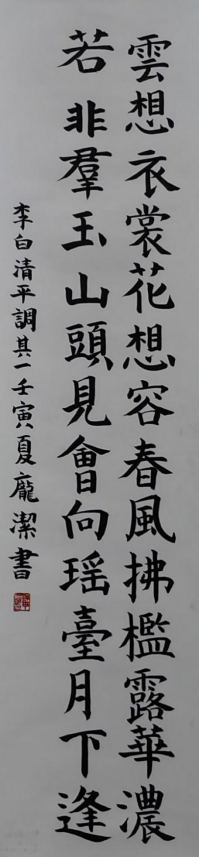 雲想衣裳花想容春風拂檻露華濃
若非羣玉山頭見會向瑶臺月下逢
李白清平調其一壬寅夏龐潔書